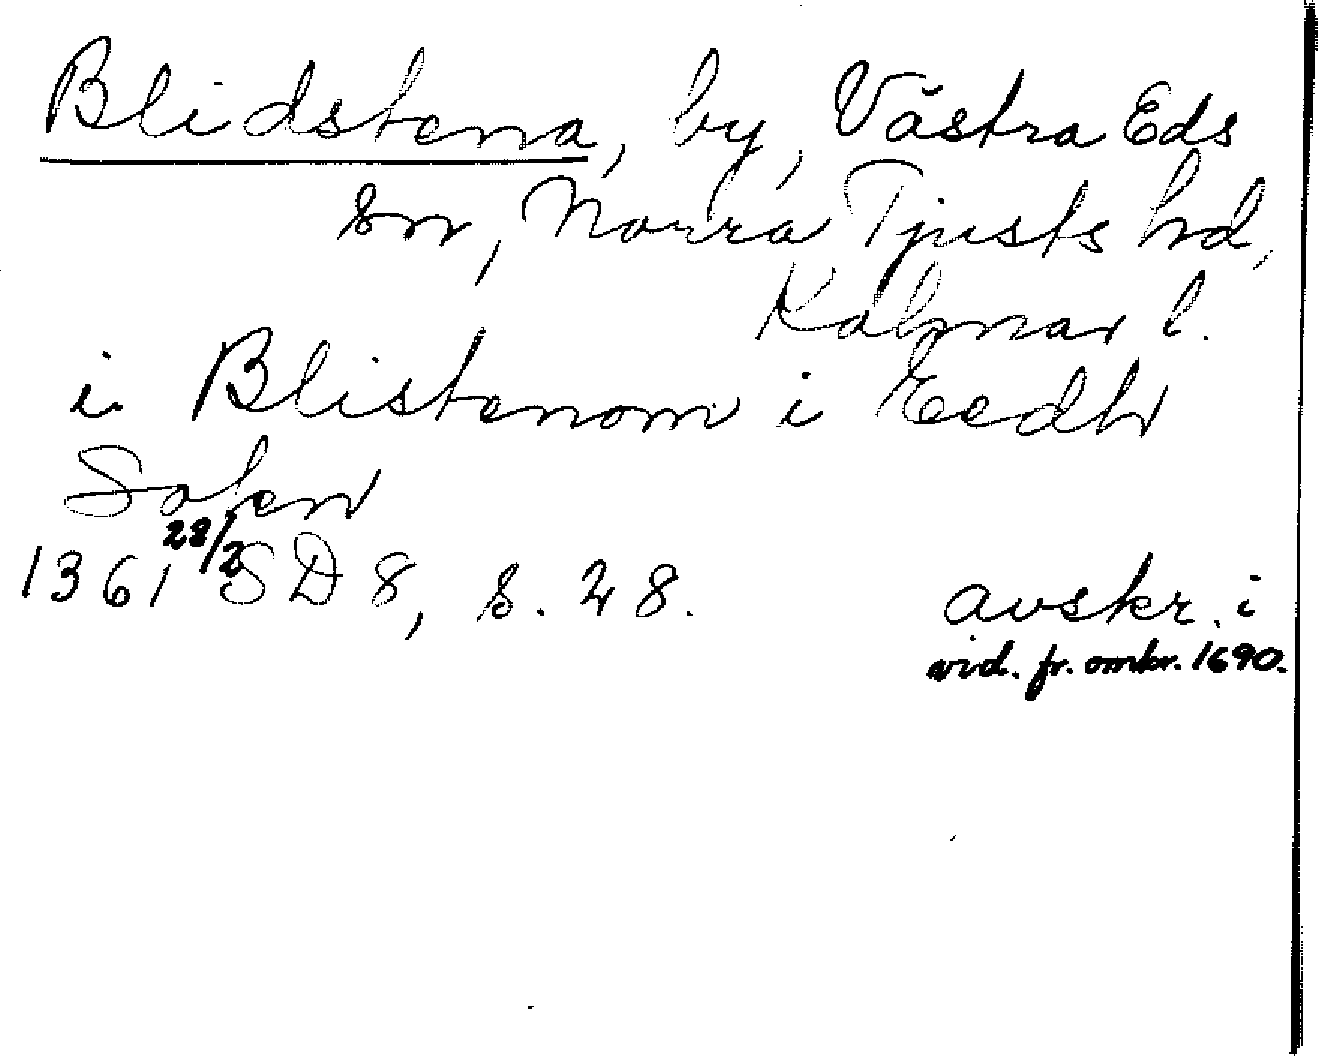 Blidstena, by, Västra Eds
sn, Norra Tjusts hd,
Kalmar l.
i Blistenom i Eedh
Sokn
1361 28/2 SD 8, s. 28.
avskr. i
vid. fr. omkr. 1690.